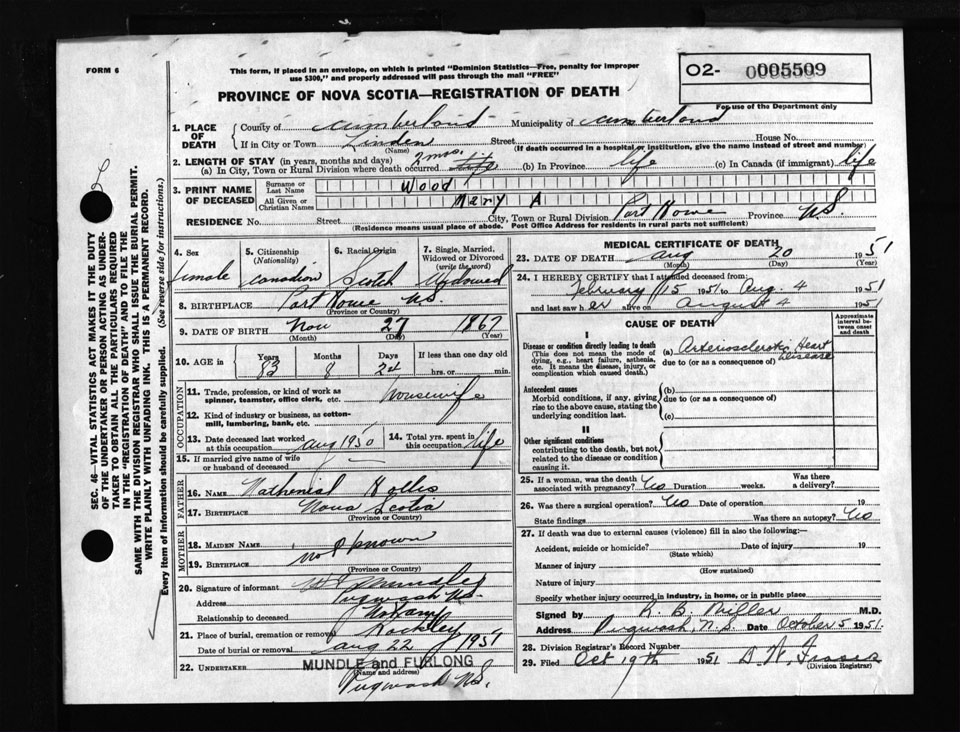 FORM 6
This form, if placed in an envelope, on which is printed "Dominion Statistics—Free, penalty for improper
use $300," and properly addressed will pass through the mail "FREE"
O2- 0005509
PROVINCE OF NOVA SCOTIA—REGISTRATION OF DEATH
For use of the Department only
1. PLACE OF DEATH
County of Cumberland Municipality of Cumberland
If in City or Town Linden Street House No.
(Name) (If death occurred in a hospital or institution, give the name instead of street and number)
2. LENGTH OF STAY (in years, months and days)
(a) In City, Town or Rural Division where death occurred 2 mos. life (b) In Province life (c) In Canada (if immigrant) life
3. PRINT NAME OF DECEASED
Surname or Last Name Wood
All Given or Christian Names Mary A
RESIDENCE No. Street City, Town or Rural Division Port Howe Province N.S.
(Residence means usual place of abode. Post Office Address for residents in rural parts not sufficient)
4. Sex female
5. Citizenship (Nationality) Canadian
6. Racial Origin Scotch
7. Single, Married, Widowed or Divorced (write the word) Widowed
8. BIRTHPLACE Port Howe N.S.
(Province or Country)
9. DATE OF BIRTH Nov 27 1867
(Month) (Day) (Year)
10. AGE in Years Months Days If less than one day old
83 8 24 hrs. or min.
OCCUPATION
11. Trade, profession, or kind of work as spinner, teamster, office clerk, etc. Housewife
12. Kind of industry or business, as cotton-mill, lumbering, bank, etc.
13. Date deceased last worked at this occupation Aug 1950
14. Total yrs. spent in this occupation life
15. If married give name of wife or husband of deceased
FATHER
16. NAME Nathenial Hollis
17. BIRTHPLACE Nova Scotia
(Province or Country)
MOTHER
18. MAIDEN NAME
19. BIRTHPLACE not known
(Province or Country)
20. Signature of informant Mundle
Address Pugwash N.S.
Relationship to deceased
21. Place of burial, cremation or removal Rockley
Date of burial or removal Aug 22 1951
22. UNDERTAKER MUNDLE and FURLONG
(Name and address)
Pugwash N.S.
MEDICAL CERTIFICATE OF DEATH
23. DATE OF DEATH Aug 20 1951
(Month) (Day) (Year)
24. I HEREBY CERTIFY that I attended deceased from:
February 15 1951 to Aug. 4 1951
and last saw her alive on August 4 1951
CAUSE OF DEATH
Approximate interval between onset and death
I
Disease or condition directly leading to death
(This does not mean the mode of dying, e.g., heart failure, asthenia, etc. It means the disease, injury, or complication which caused death.)
(a) Arteriosclerotic Heart Disease
due to (or as a consequence of)
Antecedent causes
Morbid conditions, if any, giving rise to the above cause, stating the underlying condition last.
(b)
due to (or as a consequence of)
(c)
II
Other significant conditions contributing to the death, but not related to the disease or condition causing it.
25. If a woman, was the death associated with pregnancy? No Duration weeks. Was there a delivery?
26. Was there a surgical operation? No Date of operation 19
State findings Was there an autopsy? No
27. If death was due to external causes (violence) fill in also the following:—
Accident, suicide or homicide? Date of injury 19
(State which)
Manner of injury
(How sustained)
Nature of injury
Specify whether injury occurred in industry, in home, or in public place
Signed by R. B. Miller M.D.
Address Pugwash, N.S. Date October 5 1951.
28. Division Registrar's Record Number
29. Filed Oct 19th 1951 D. W. Fraser
(Division Registrar)
SEC. 46—VITAL STATISTICS ACT MAKES IT THE DUTY
OF THE UNDERTAKER OR PERSON ACTING AS UNDER-
TAKER TO OBTAIN ALL THE PARTICULARS REQUIRED
IN THE "REGISTRATION OF DEATH" AND TO FILE THE
SAME WITH THE DIVISION REGISTRAR WHO SHALL ISSUE THE BURIAL PERMIT.
WRITE PLAINLY WITH UNFADING INK. THIS IS A PERMANENT RECORD.
Every item of information should be carefully supplied. (See reverse side for instructions.)